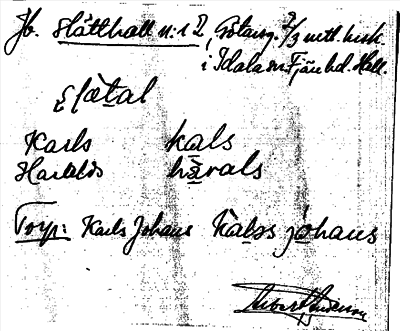 Jb. Slätthall n:1 D, Götang. 2/3 mtl. krsk.
i Idala sn Fjäre hd. Hall.
Slätal
Karls kals
Haralds hàrals
Torp: Karls Johans kalss johans